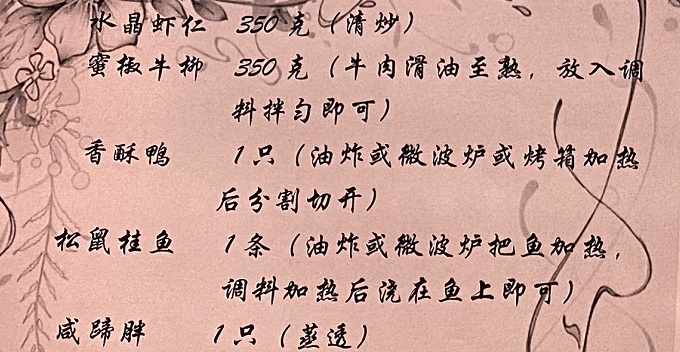 水晶虾仁 350克（清炒）
蜜椒牛柳 350克（牛肉滑油至熟，放入调
料拌匀即可）
香酥鸭 1只（油炸或微波炉或烤箱加热
后分割切开）
松鼠桂鱼 1条（油炸或微波炉把鱼加热，
调料加热后浇在鱼上即可）
咸蹄胖 1只（蒸透）